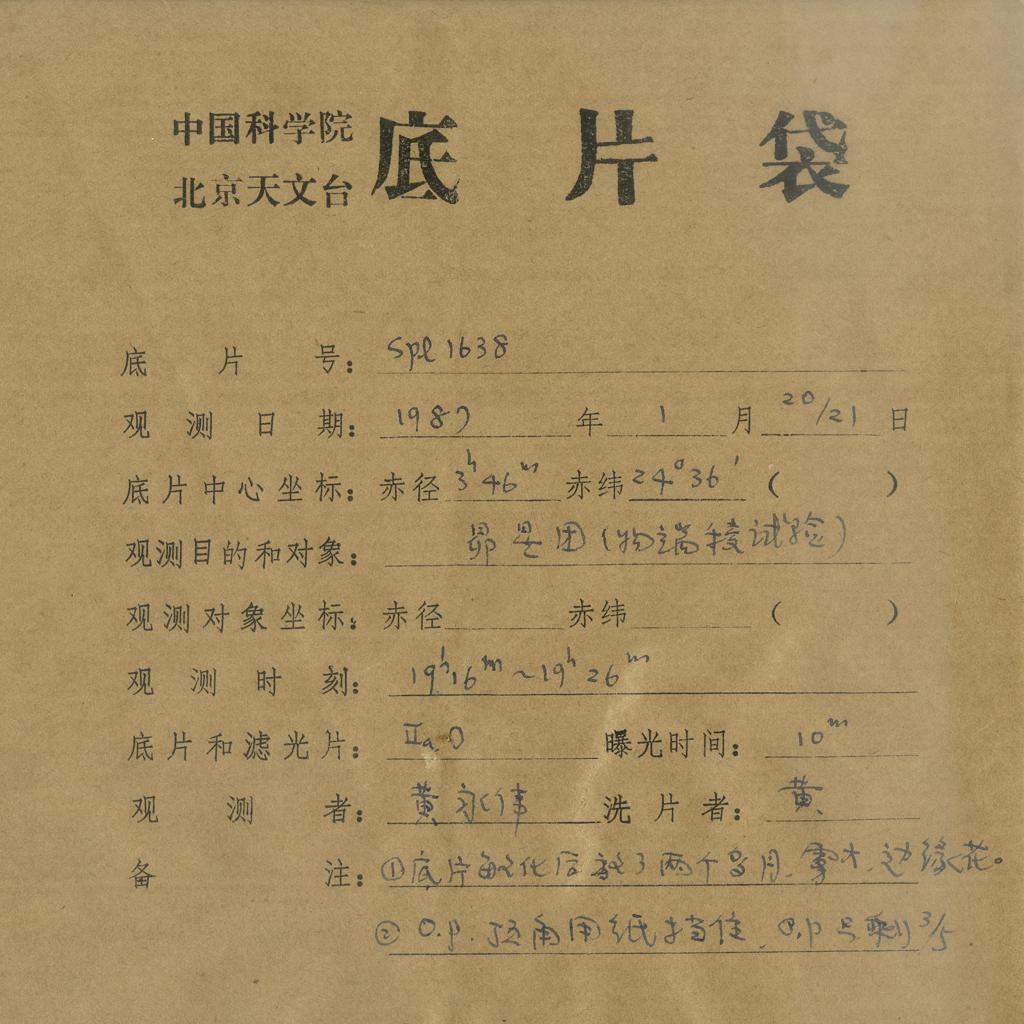 中国科学院
北京天文台 底片袋
底片号: Spl 1638
观测日期: 1987 年 1 月 20/21 日
底片中心坐标: 赤径 3h 46m 赤纬 24° 36′ ( )
观测目的和对象: 昴星团 (物端棱试验)
观测对象坐标: 赤径 赤纬 ( )
观测时刻: 19h16m ~ 19h 26m
底片和滤光片: IIa O 曝光时间: 10m
观测者: 黄永伟 洗片者: 黄
备注: ①底片敏化后放了两个多月, 雾大, 边缘花。
② O.P. 顶角用纸挡住, O.P 只剩 3/5